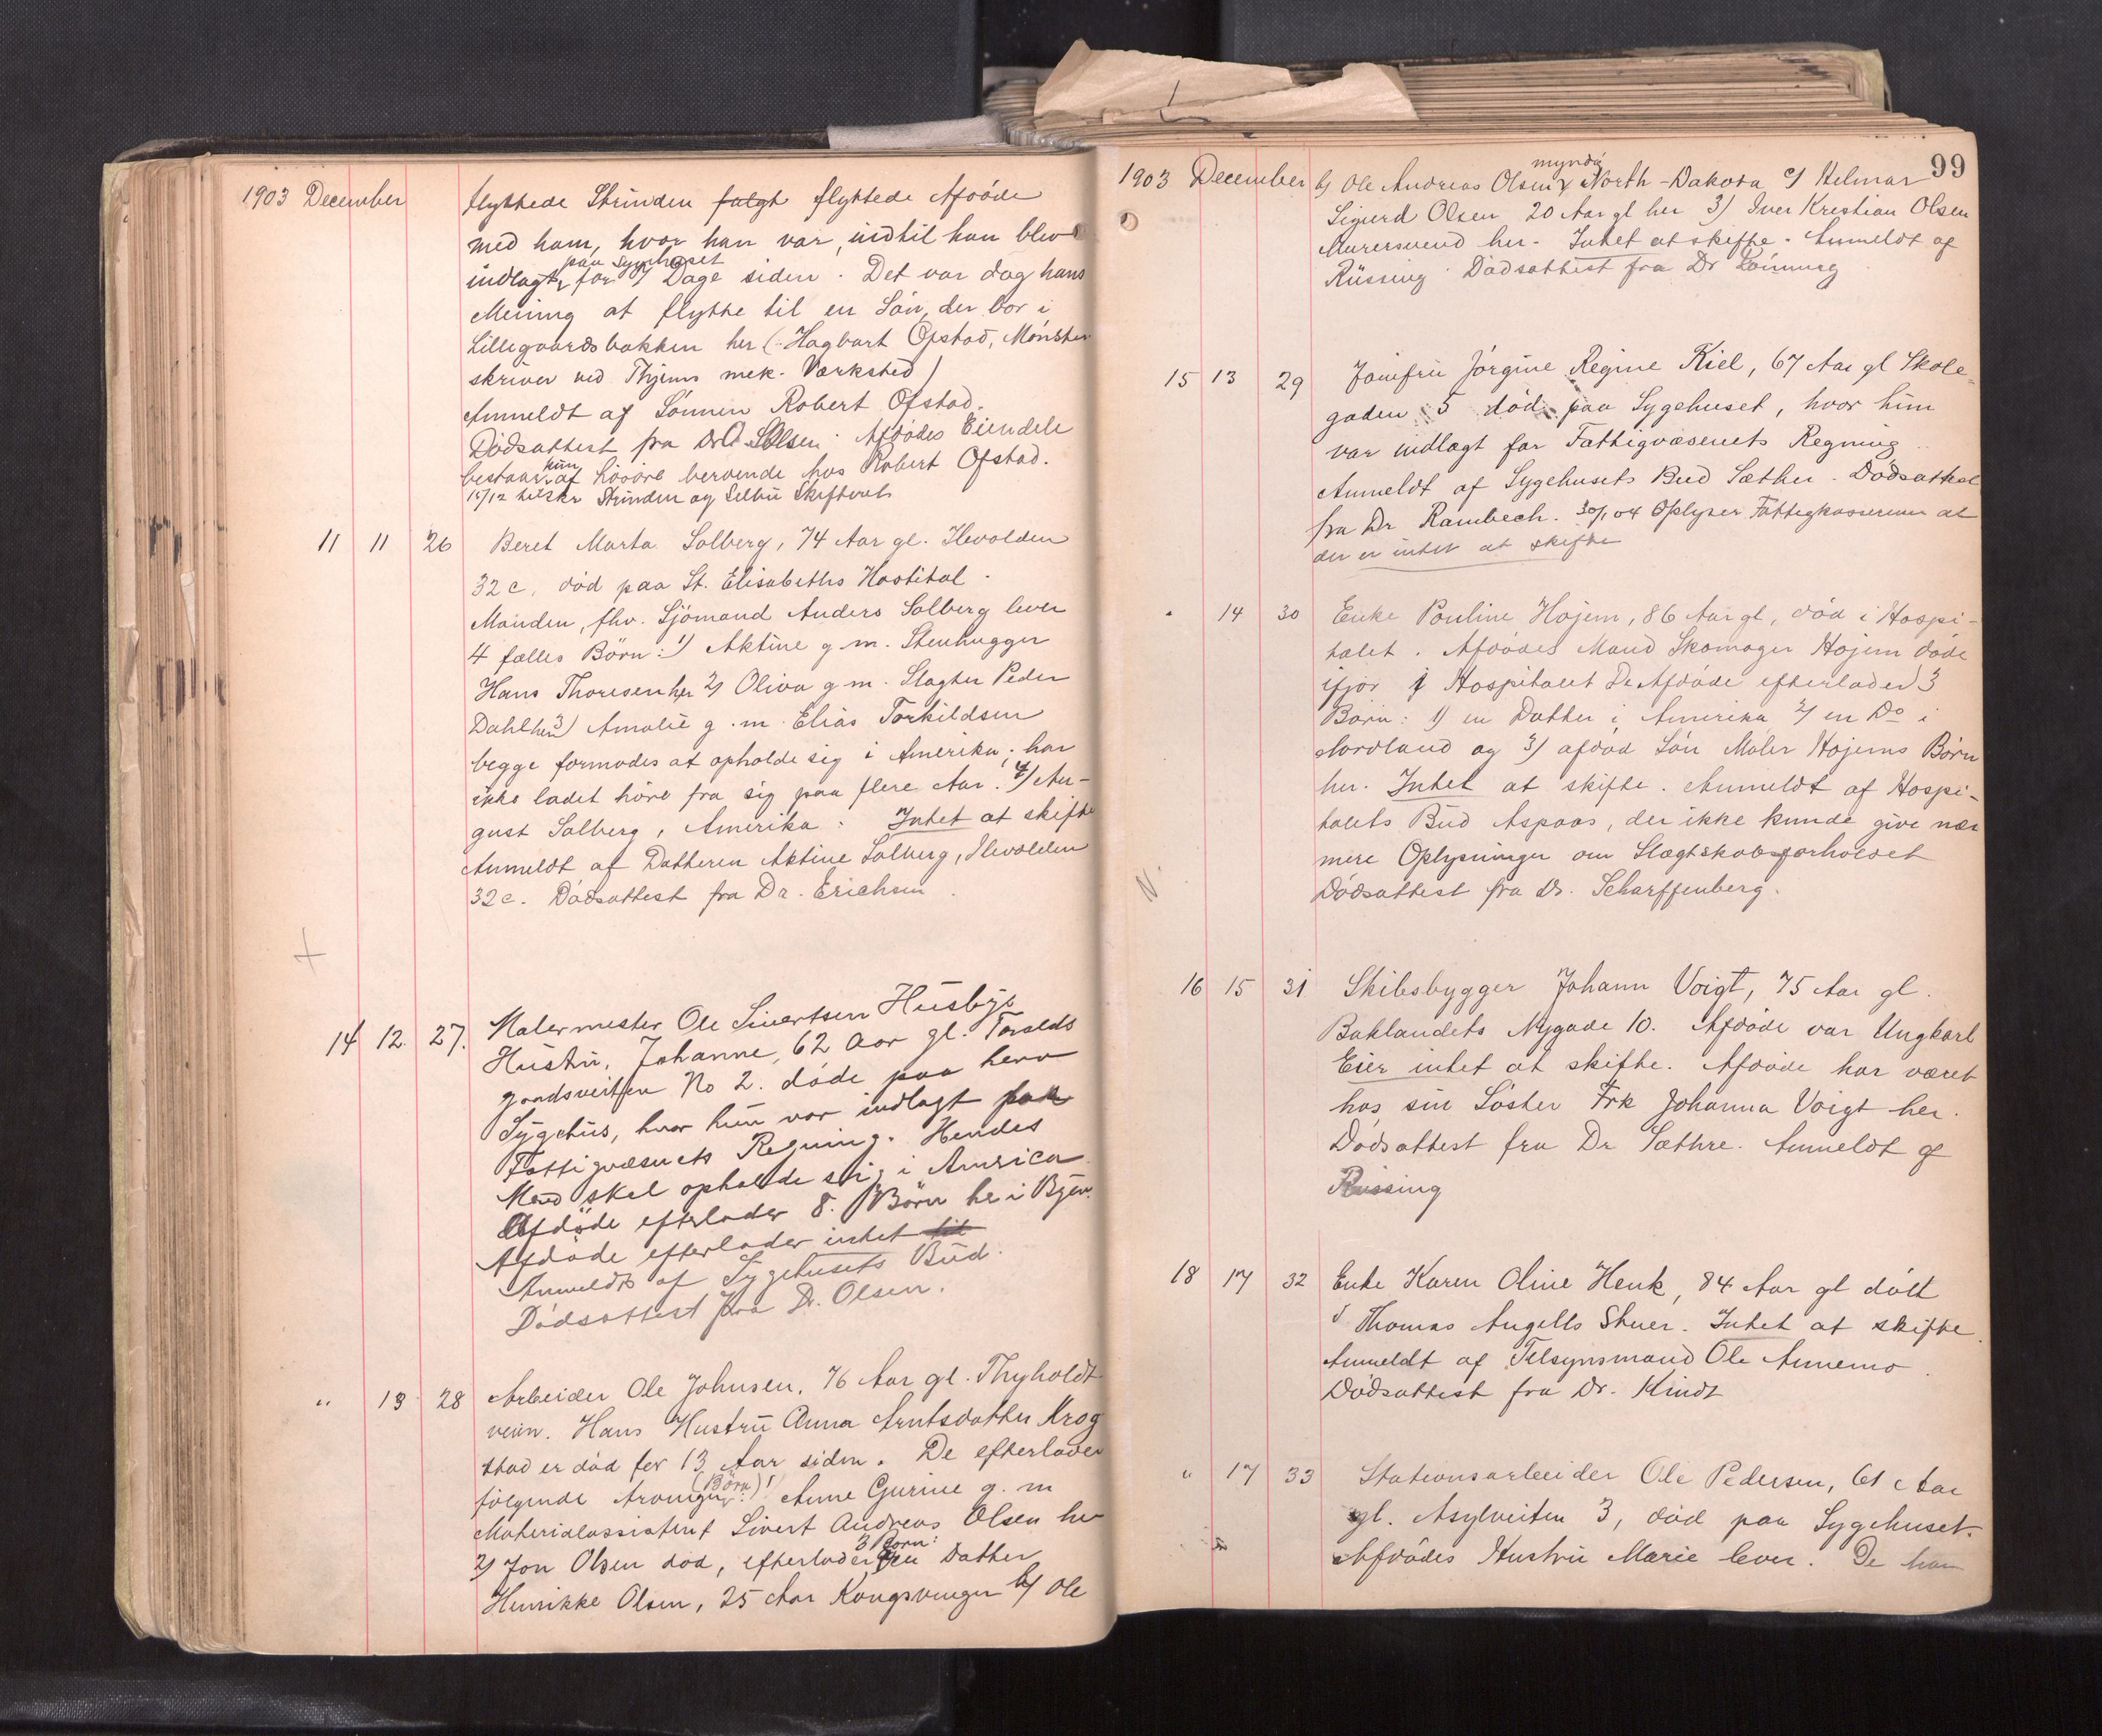 1903 December
flyttede Strinden fulgt flyttede Afdöde
med ham, hvor han var, indtil han blev
indlagt paa Sygehuset for 7 Dage siden. Det var dog hans
Mening at flytte til en Sön, der bor i
Lillegaardsbakken her (Hagbart Ofstad, Mönster-
skriver ved Thjems mek. Værksted)
Anmeldt af Sönnen Robert Ofstad.
Dödsattest fra Dr Olsen. Afdödes Eiendele
bestaar kun af Lösöre beroende hos Robert Ofstad.
15/12 tilskr Strinden og Selbu Skifteret
11 11 26 Beret Marta Solberg, 74 Aar gl. Ilevolden
32 c, död paa St. Elisabeths Hostital.
Manden, fhv. Sjömand Anders Solberg lever
4 fælles Börn: 1) Aktine g. m. Stenhugger
Hans Thoresen her 2) Oliva g m. Slagter Peder
Dahl her 3) Amalie g. m. Elias Torkildsen
begge formodes at opholde sig i Amerika, har
ikke ladet höre fra sig paa flere Aar. 4) Au-
gust Solberg, Amerika. Intet at skifte
Anmeldt af Datteren Aktine Solberg, Ilevolden
32 c. Dödsattest fra Dr. Erichsen.
14 12. 27. Malermester Ole Sivertsen Husbys
Hustru, Johanne, 62 Aar gl. Tavalds
gaardsveiten No 2. döde paa herv
Sygehus, hvor hun var indlagt paa
Fattigvæsenets Regning. Hendes
Mand skal opholde sig i America
Afdöde efterlader 8. Börn her i Byen.
Afdöde efterlader intet til
Anmeldt af Sygehusets Bud.
Dödsattest fra Dr. Olsen.
" 13 28 Arbeider Ole Johnsen, 76 Aar gl. Thyholdt
veien. Hans Hustru Anna Arntsdatter Krog
stad er död for 13 Aar siden. De efterlader
fölgende Arvinger (Börn): 1) Anne Gurine g. m
Materialassistent Sivert Andreas Olsen her
2) Jon Olsen död, efterlader 3 Börn: en Datter
Henrikke Olsen, 25 Aar Kongsvinger b) Ole
99
1903 December b) Ole Andreas Olsen myndig North-Dakota c) Helmar
Sigurd Olsen, 20 Aar gl her 3) Iver Kristian Olsen
Murersvend her. Intet at skifte. Anmeldt af
Rüssing. Dödsattest fra Dr
15 13 29 Jomfru Jörgine Regine Kiel, 67 Aar gl Skole-
gaden 5 död paa Sygehuset, hvor hun
var indlagt for Fattigvæsenets Regning.
Anmeldt af Sygehusets Bud Sæther. Dödsattest
fra Dr Rambech. 30/1 04 Oplyser Fattigkassereren at
der er intet at skifte
" 14 30 Enke Pouline Hojem, 86 Aar gl, död i Hospi-
talet. Afdödes Mand Skomager Hojem döde
ifjor i Hospitalet De Afdöde efterlader 3
Börn: 1) en Datter i Amerika 2) en Do i
Nordland og 3) afdöd Sön Maler Hojems Börn
her. Intet at skifte. Anmeldt af Hospi-
talets Bud Aspaas, der ikke kunde give nær
mere Oplysninger om Slægtskabsforholdet
Dödsattest fra Dr. Scharffenberg.
16 15 31 Skibsbygger Johann Voigt, 75 Aar gl.
Baklandets Nygade 10. Afdöde var Ungkarl
Eier intet at skifte. Afdöde har været
hos sin Söster Frk Johanna Voigt her.
Dödsattest fra Dr Sæthre. Anmeldt af
Rüssing
18 17 32 Enke Karen Oline Henk, 84 Aar gl död
i Thomas Angells Stuer. Intet at skifte.
Anmeldt af Tilsynsmand Ole Annemo.
Dödsattest fra Dr. Kindt
" 17 33 Stationsarbeider Ole Pedersen, 61 Aar
gl. Asylveiten 3, död paa Sygehuset.
Afdödes Hustru Marie lever. De har